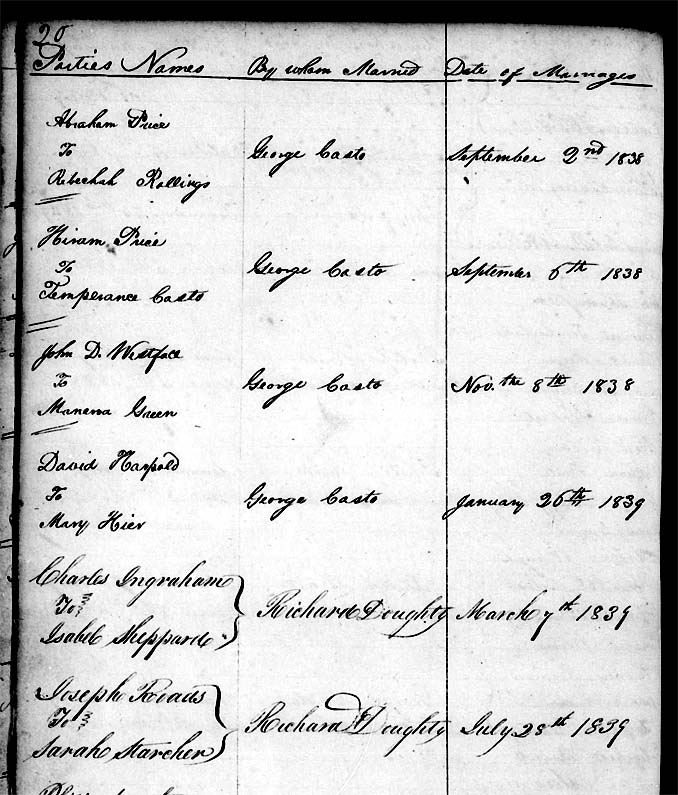 20
Parties Names By whom Married Date of Marriages
Abraham Price
To George Casto September 2nd 1838
Rebechah Rollings
Hiram Price
To George Casto September 6th 1838
Temperance Casto
John D. Westface
To George Casto Nov. the 8th 1838
Manerva Green
David Harpold
To George Casto January 26th 1839
Mary Hier
Charles Ingraham
To Richard Doughty March 7th 1839
Isabel Sheppard
Joseph Roads
To Richard Doughty July 28th 1839
Sarah Starcher